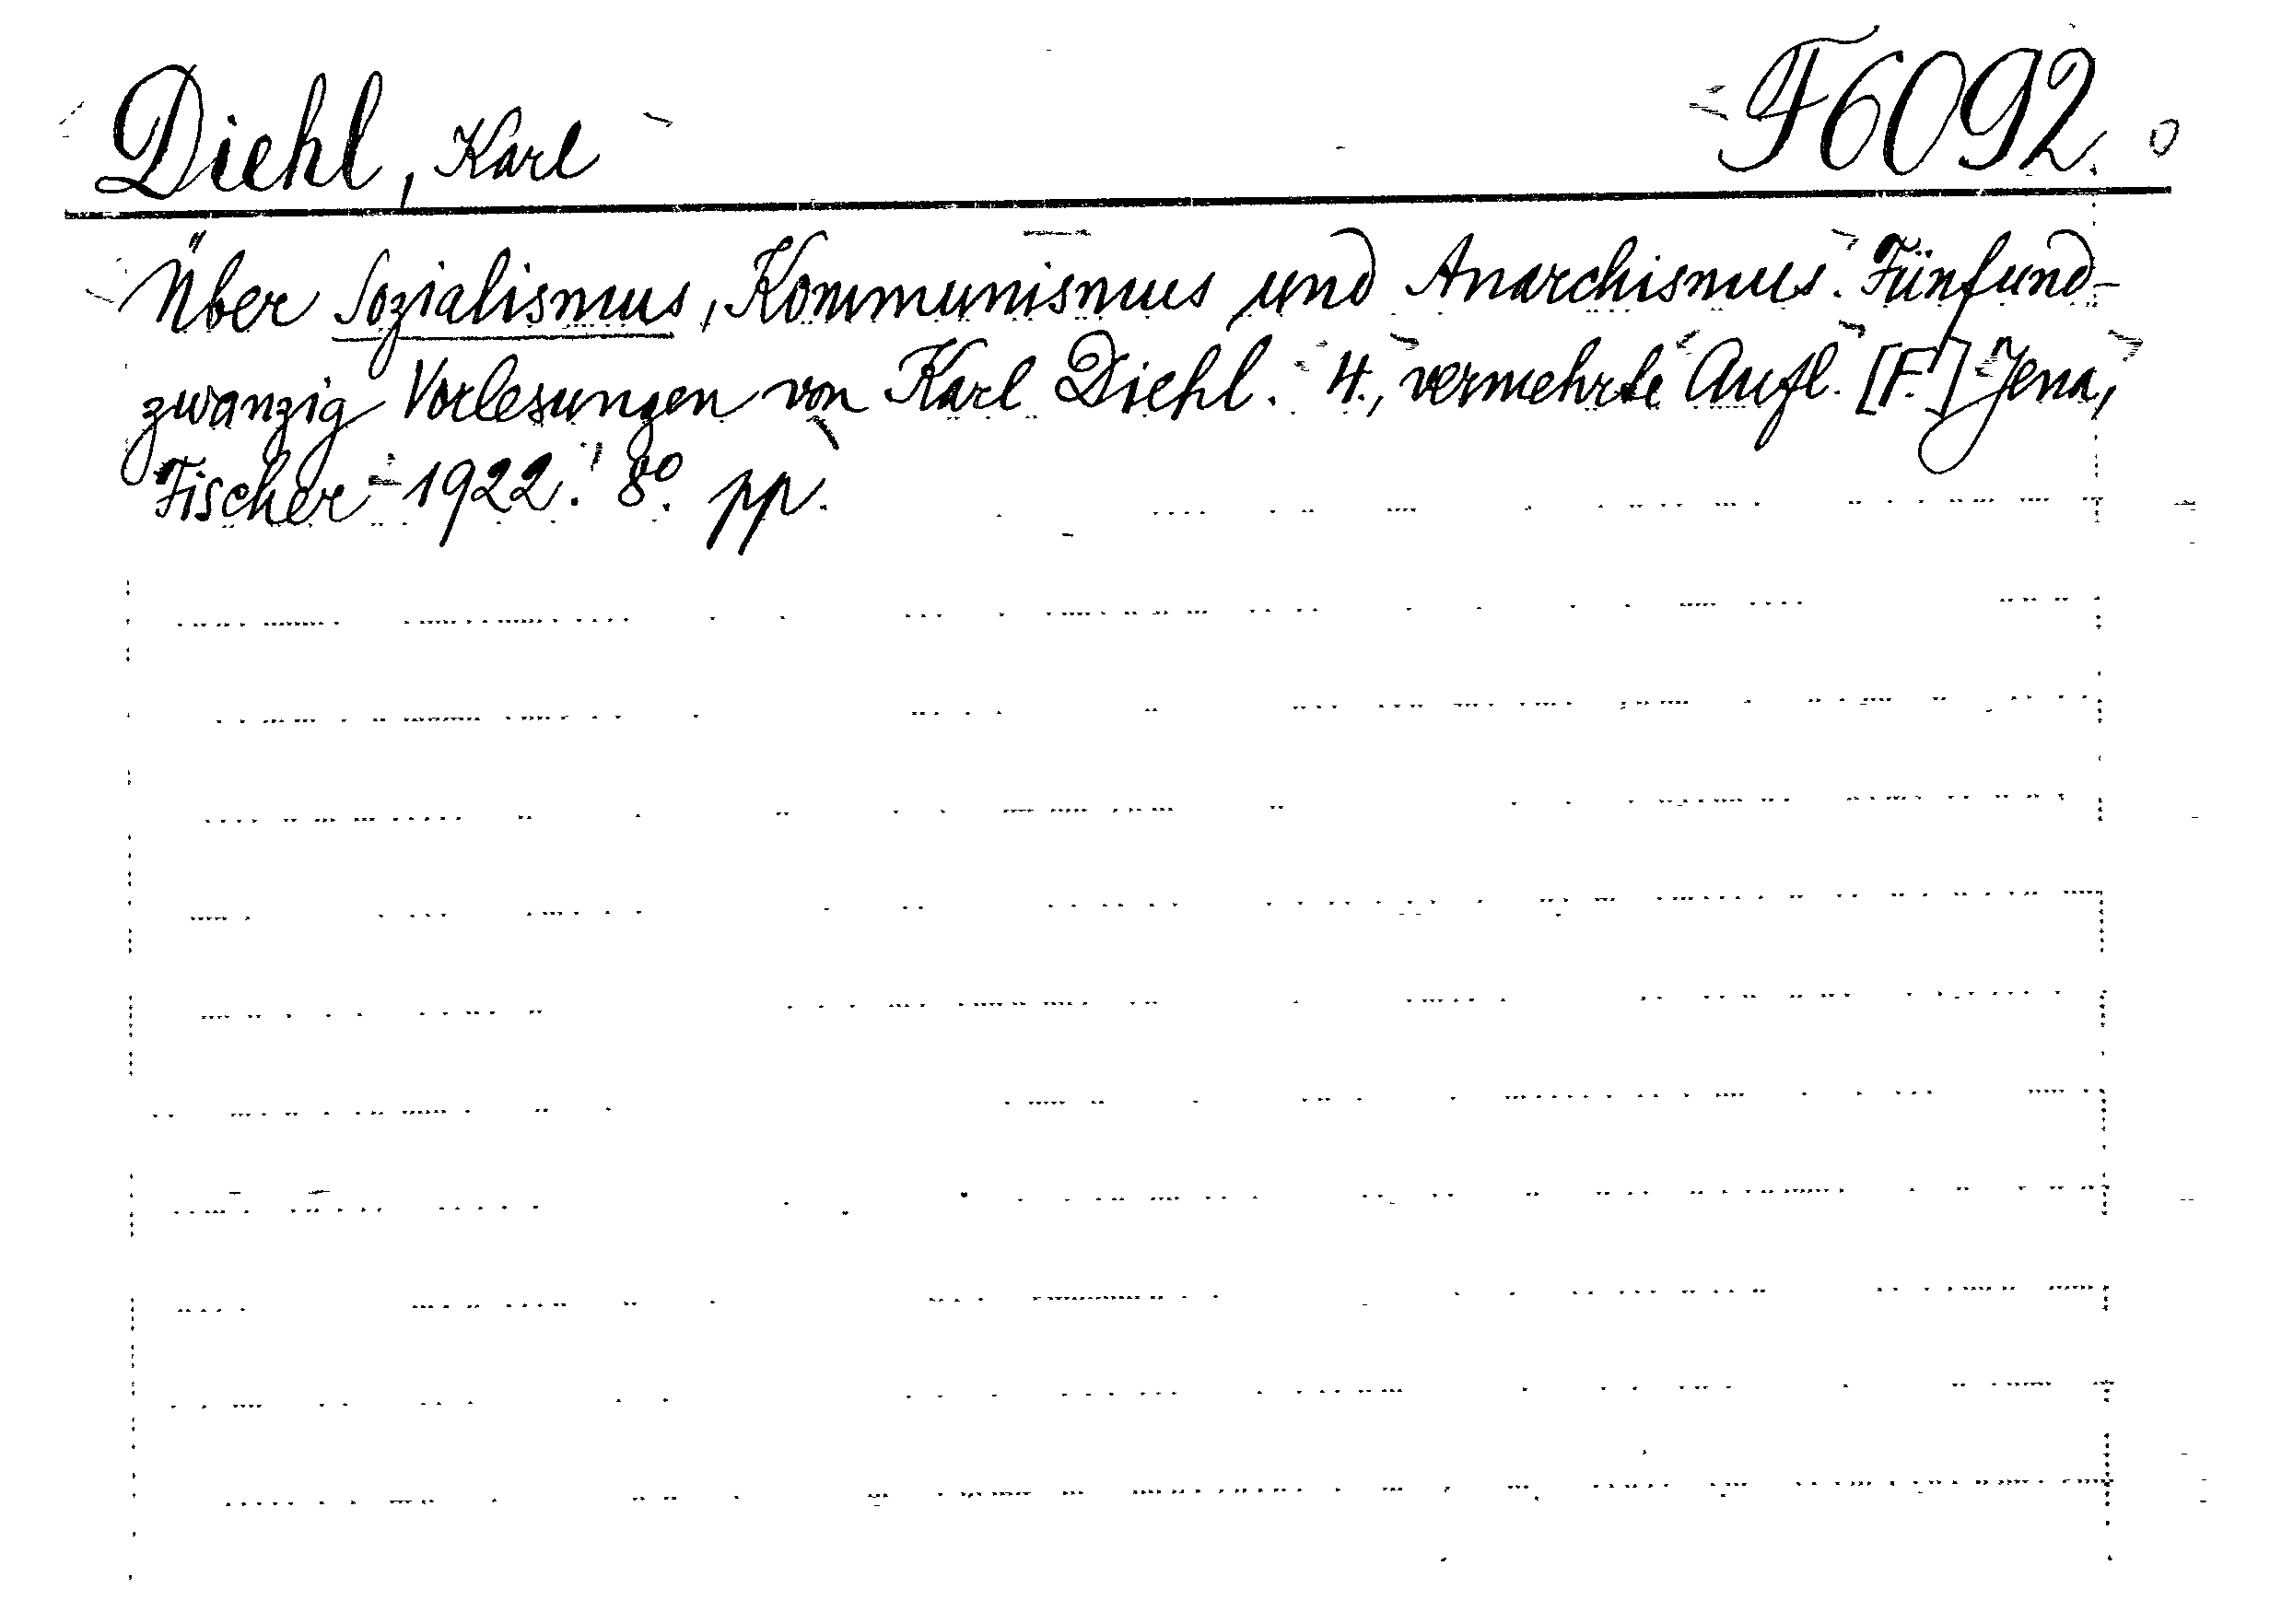 Diehl, Karl F6092.
Über Sozialismus, Kommunismus und Anarchismus. Fünfund-
zwanzig Vorlesungen von Karl Diehl. 4., vermehrte Aufl. [F.] Jena,
Fischer 1922. 8º. pp.